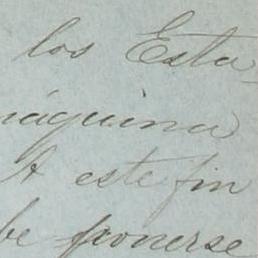 los Esta
máquina
A este fin
be ponerse